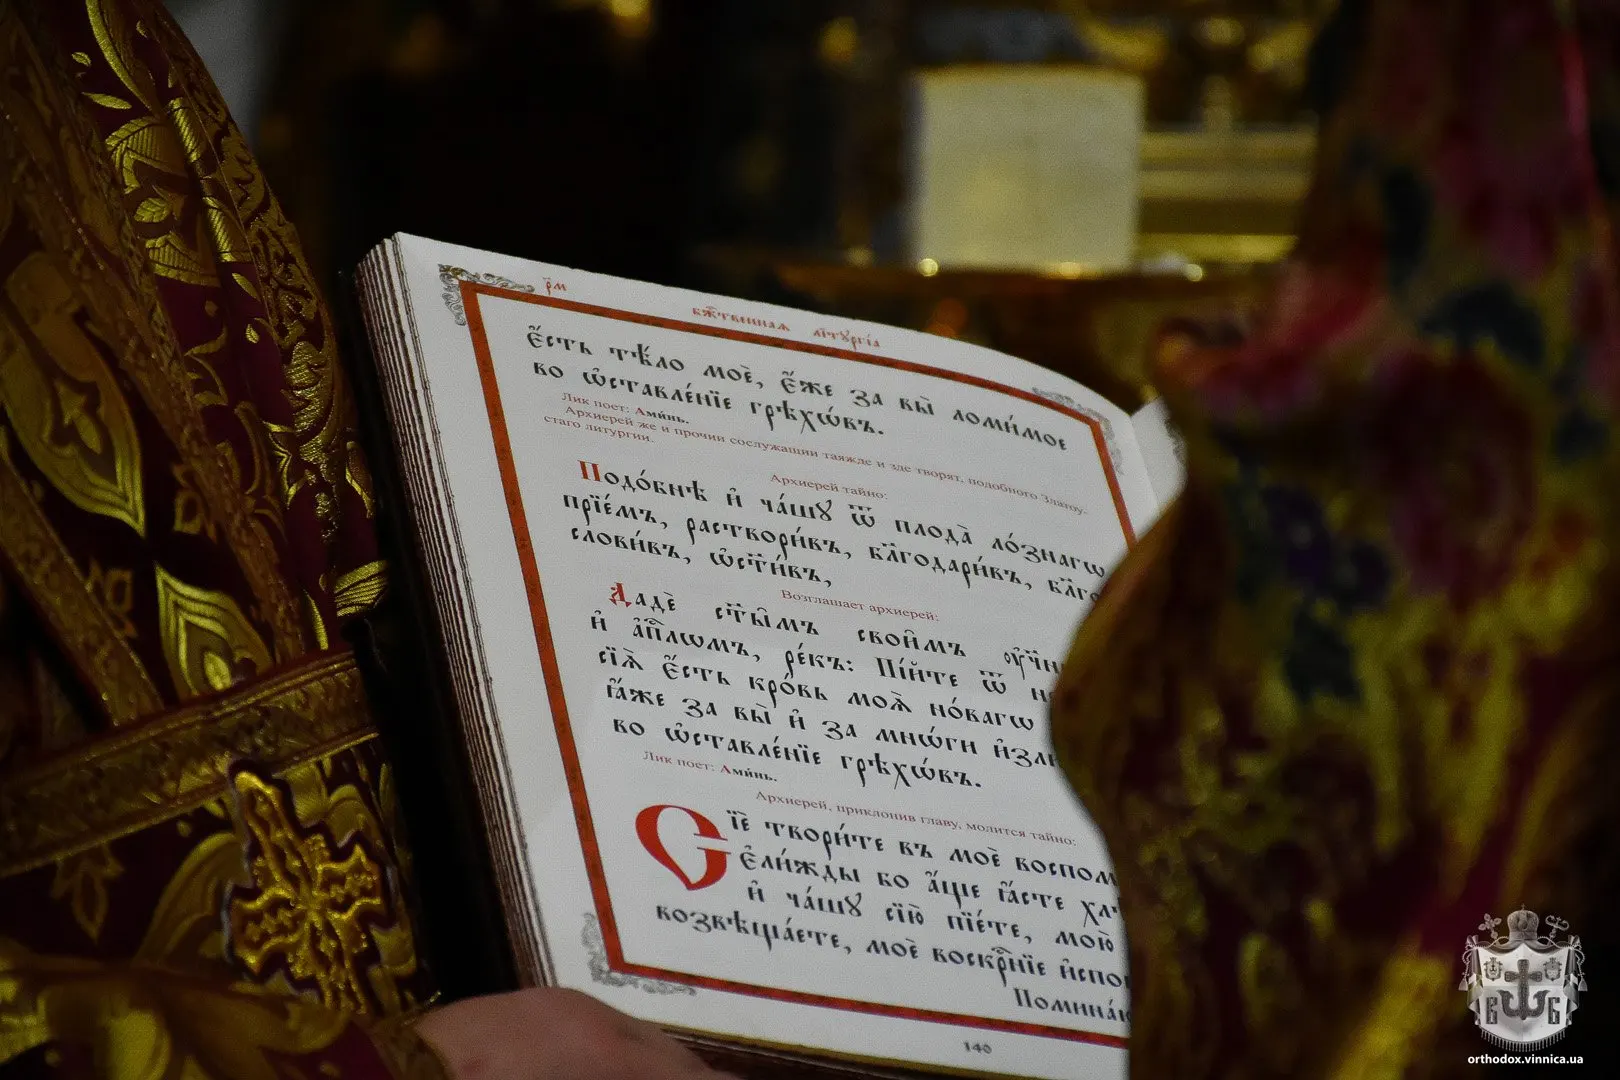 р҃м
Бж҃твеннаѧ лїтꙋргі́а
є҆́сть тѣ́ло моѐ, є҆́же за вы̀ ломи́мое
во ѡ҆ставле́нїе грѣхѡ́въ.
Лик поет: Ами́нь.
Архиерей же и прочии сослужащии таяжде и зде творят, подобного Златоу-
стаго литургии.
Архиерей тайно:
Подо́бнѣ и҆ ча́шꙋ ѿ плода̀ ло́знагѡ
прїе́мъ, раствори́въ, бл҃годари́въ, бл҃го
слови́въ, ѡ҆ст҃и́въ,
Возглашает архиерей:
Дадѐ ст҃ы̑мъ свои̑мъ
и҆ а҆пⷭ҇лѡмъ, ре́къ: Пі́йте ѿ
сїѧ̀ є҆́сть кро́вь моѧ̀ но́вагѡ
ꙗ҆́же за вы̀ и҆ за мнѡ́ги
во ѡ҆ставле́нїе грѣхѡ́въ.
Лик поет: Ами́нь.
Архиерей, приклонив главу, молится тайно:
Сїѐ твори́те въ моѐ
Є҆ли́жды бо а҆́ще ꙗ҆́сте
и҆ ча́шꙋ сїю̀ пїе́те, мою̀
возвѣща́ете, моѐ воскрⷭ҇нїе
140
В Б
orthodox.vinnica.ua